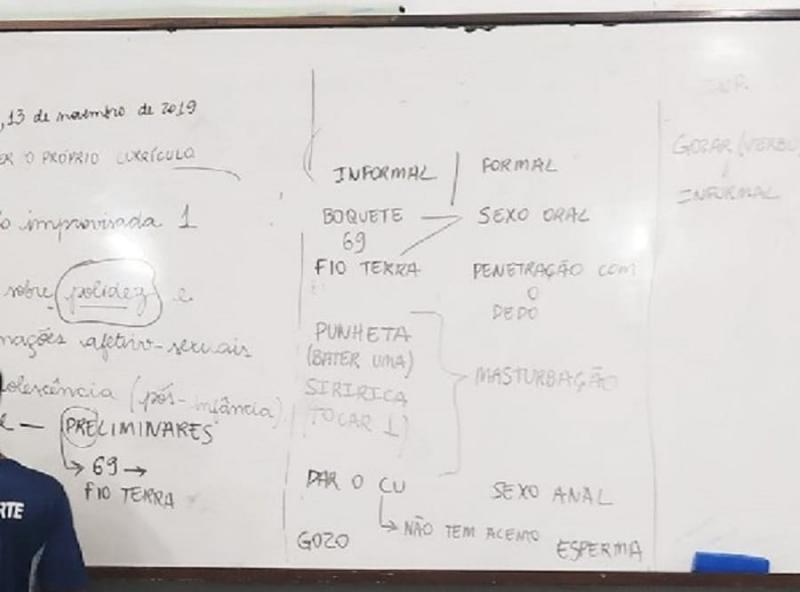 , 13 de novembro de 2019
ER O PRÓPRIO CURRÍCULO
o improvisada 1
sobre polidez e
mações afetivo-sexuais
olescência (pós-infância)
e — PRELIMINARES
↳ 69 →
FIO TERRA
RTE
INFORMAL | FORMAL
BOQUETE — SEXO ORAL
69
FIO TERRA PENETRAÇÃO COM
O
DEDO
PUNHETA
(BATER UMA)
SIRIRICA
(TOCAR 1)
MASTURBAÇÃO
DAR O CU SEXO ANAL
↳ NÃO TEM ACENTO
GOZO ESPERMA
INF.
GOZAR (VERBO)
INFORMAL